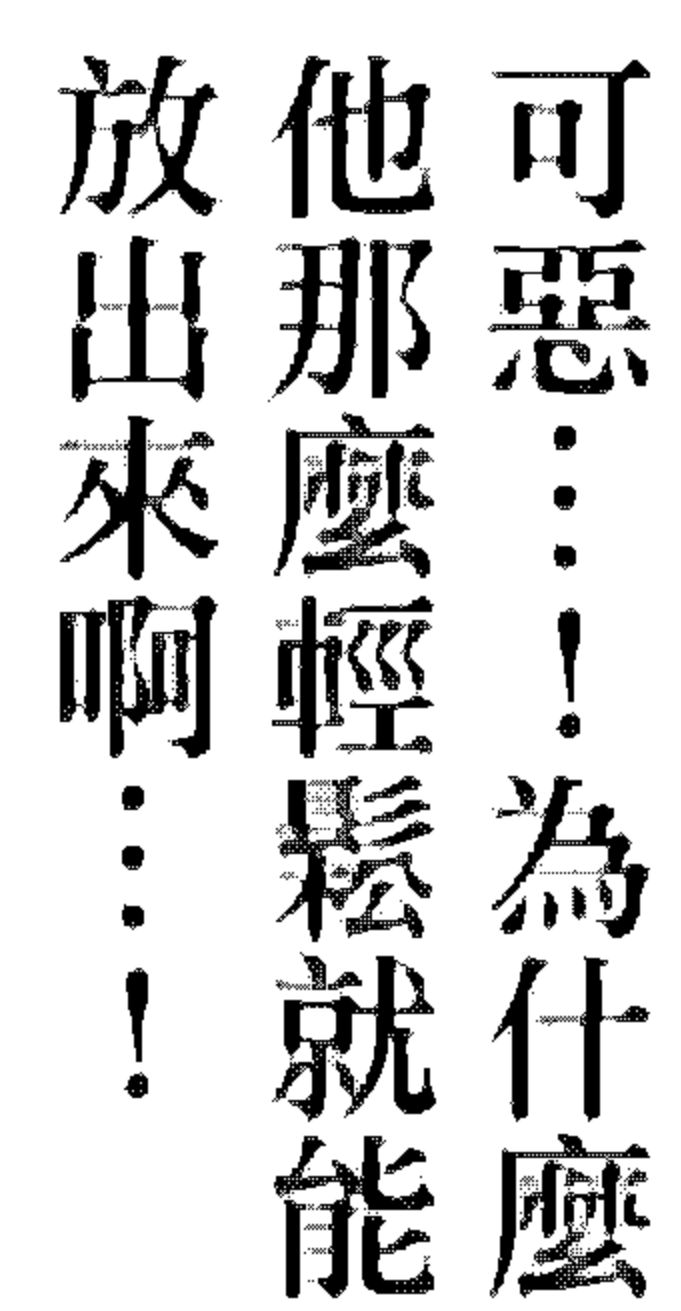 可惡…！為什麼
他那麼輕鬆就能
放出來啊…！